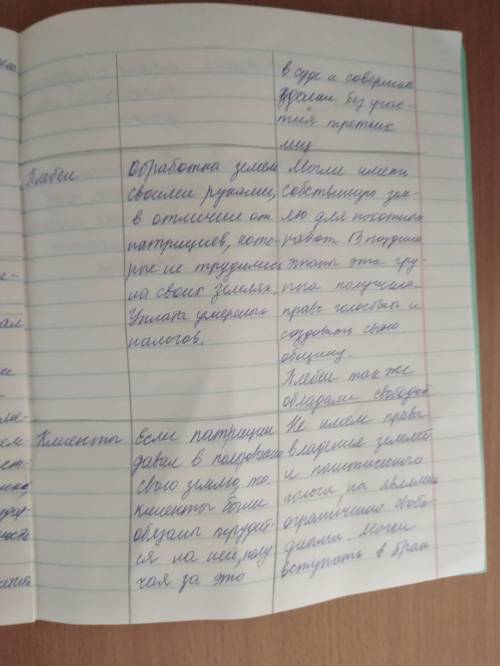 в суде и совершат
сделки без учас-
тия третьих
лиц
Плебеи
Обработка земель
своими руками,
в отличие от
патрициев, кото-
рые не трудились
на своих землях.
Уплата умеренных
налогов.
Могли иметь
собственную зем-
лю для пахотных
работ. В поздние
этапы эта гру-
ппа получила
право голосовать и
создавать свою
общину.
Плебеи так же
обладали свободой
Клиенты
Если патриции
давал в пользование
свою землю, то
клиенты были
обязаны трудит-
ся на ней, полу
чая за это
Не имели права
владения землей
и политического
голоса, но являлись
ограничено свобо-
дными. Могли
вступать в брак